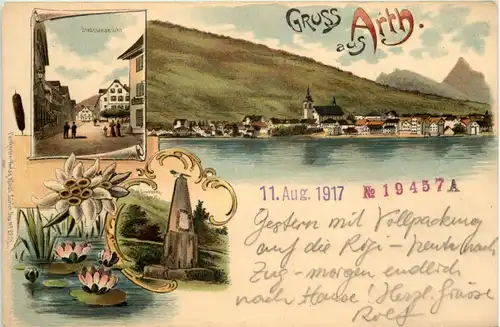 Gruss
aus Arth.
Strassenansicht
11. Aug. 1917 № 19457 A
Gestern mit Vollpackung
auf die Rigi – heute nach
Zug – morgen endlich
nach Hause! Herzl. Grüsse
Rolf